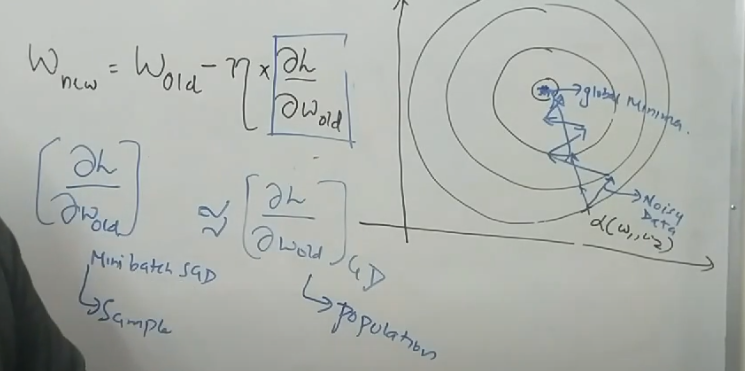 W new = W old - η × ∂L / ∂w old
[∂L / ∂w old] Mini batch SGD ≈ [∂L / ∂w old] GD
↳ Sample
↳ population
→ global Minima.
→ Noisy Data
d(w₁, w₂)